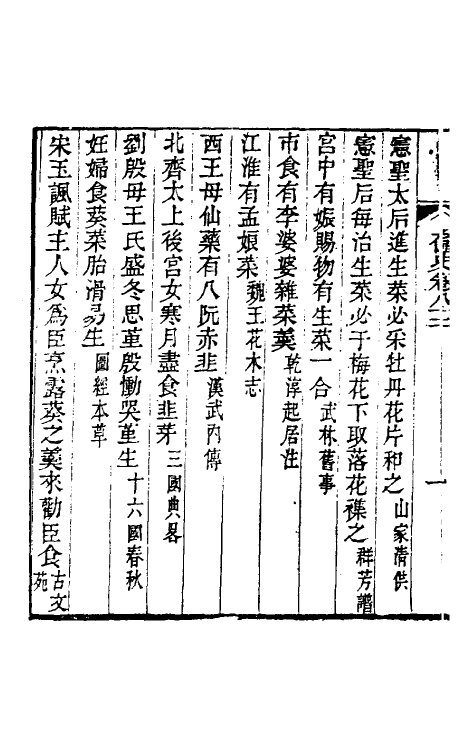 憲聖太后進生菜必采牡丹花片和之山家清供
憲聖后每治生菜必于梅花下取落花襍之群芳譜
宮中有娠賜物有生菜一合武林舊事
市食有李婆婆雜菜羮乾淳起居注
江淮有孟娘菜魏王花木志
西王母仙藥有八阮赤韭漢武內傳
北齊太上後宮女寒月盡食韭芽三國典畧
劉殷母王氏盛冬思堇殷慟哭堇生十六國春秋
妊婦食葵菜胎滑易生圖經本草
宋玉諷賦主人女爲臣烹露葵之羮來勸臣食古文苑